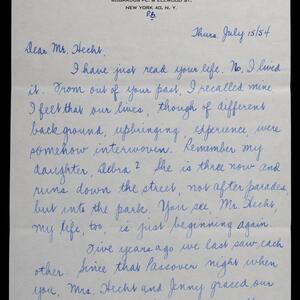 BOGARDUS PL. & ELLWOOD ST.
NEW YORK 40, N. Y.
Thurs. July 15/54
Dear Mr. Hecht,
I have just read your life. No, I lived
it. From out of your past, I recalled mine
I felt that our lives, though of different
background, upbringing, experience, were
somehow interwoven. Remember my
daughter, Debra? She is three now and
runs down the street, not after parades
but into the park. You see, Mr. Hecht,
my life, too, is just beginning again.
Five years ago we last saw each
other. Since that Passover night when
you, Mrs. Hecht and Jenny graced our